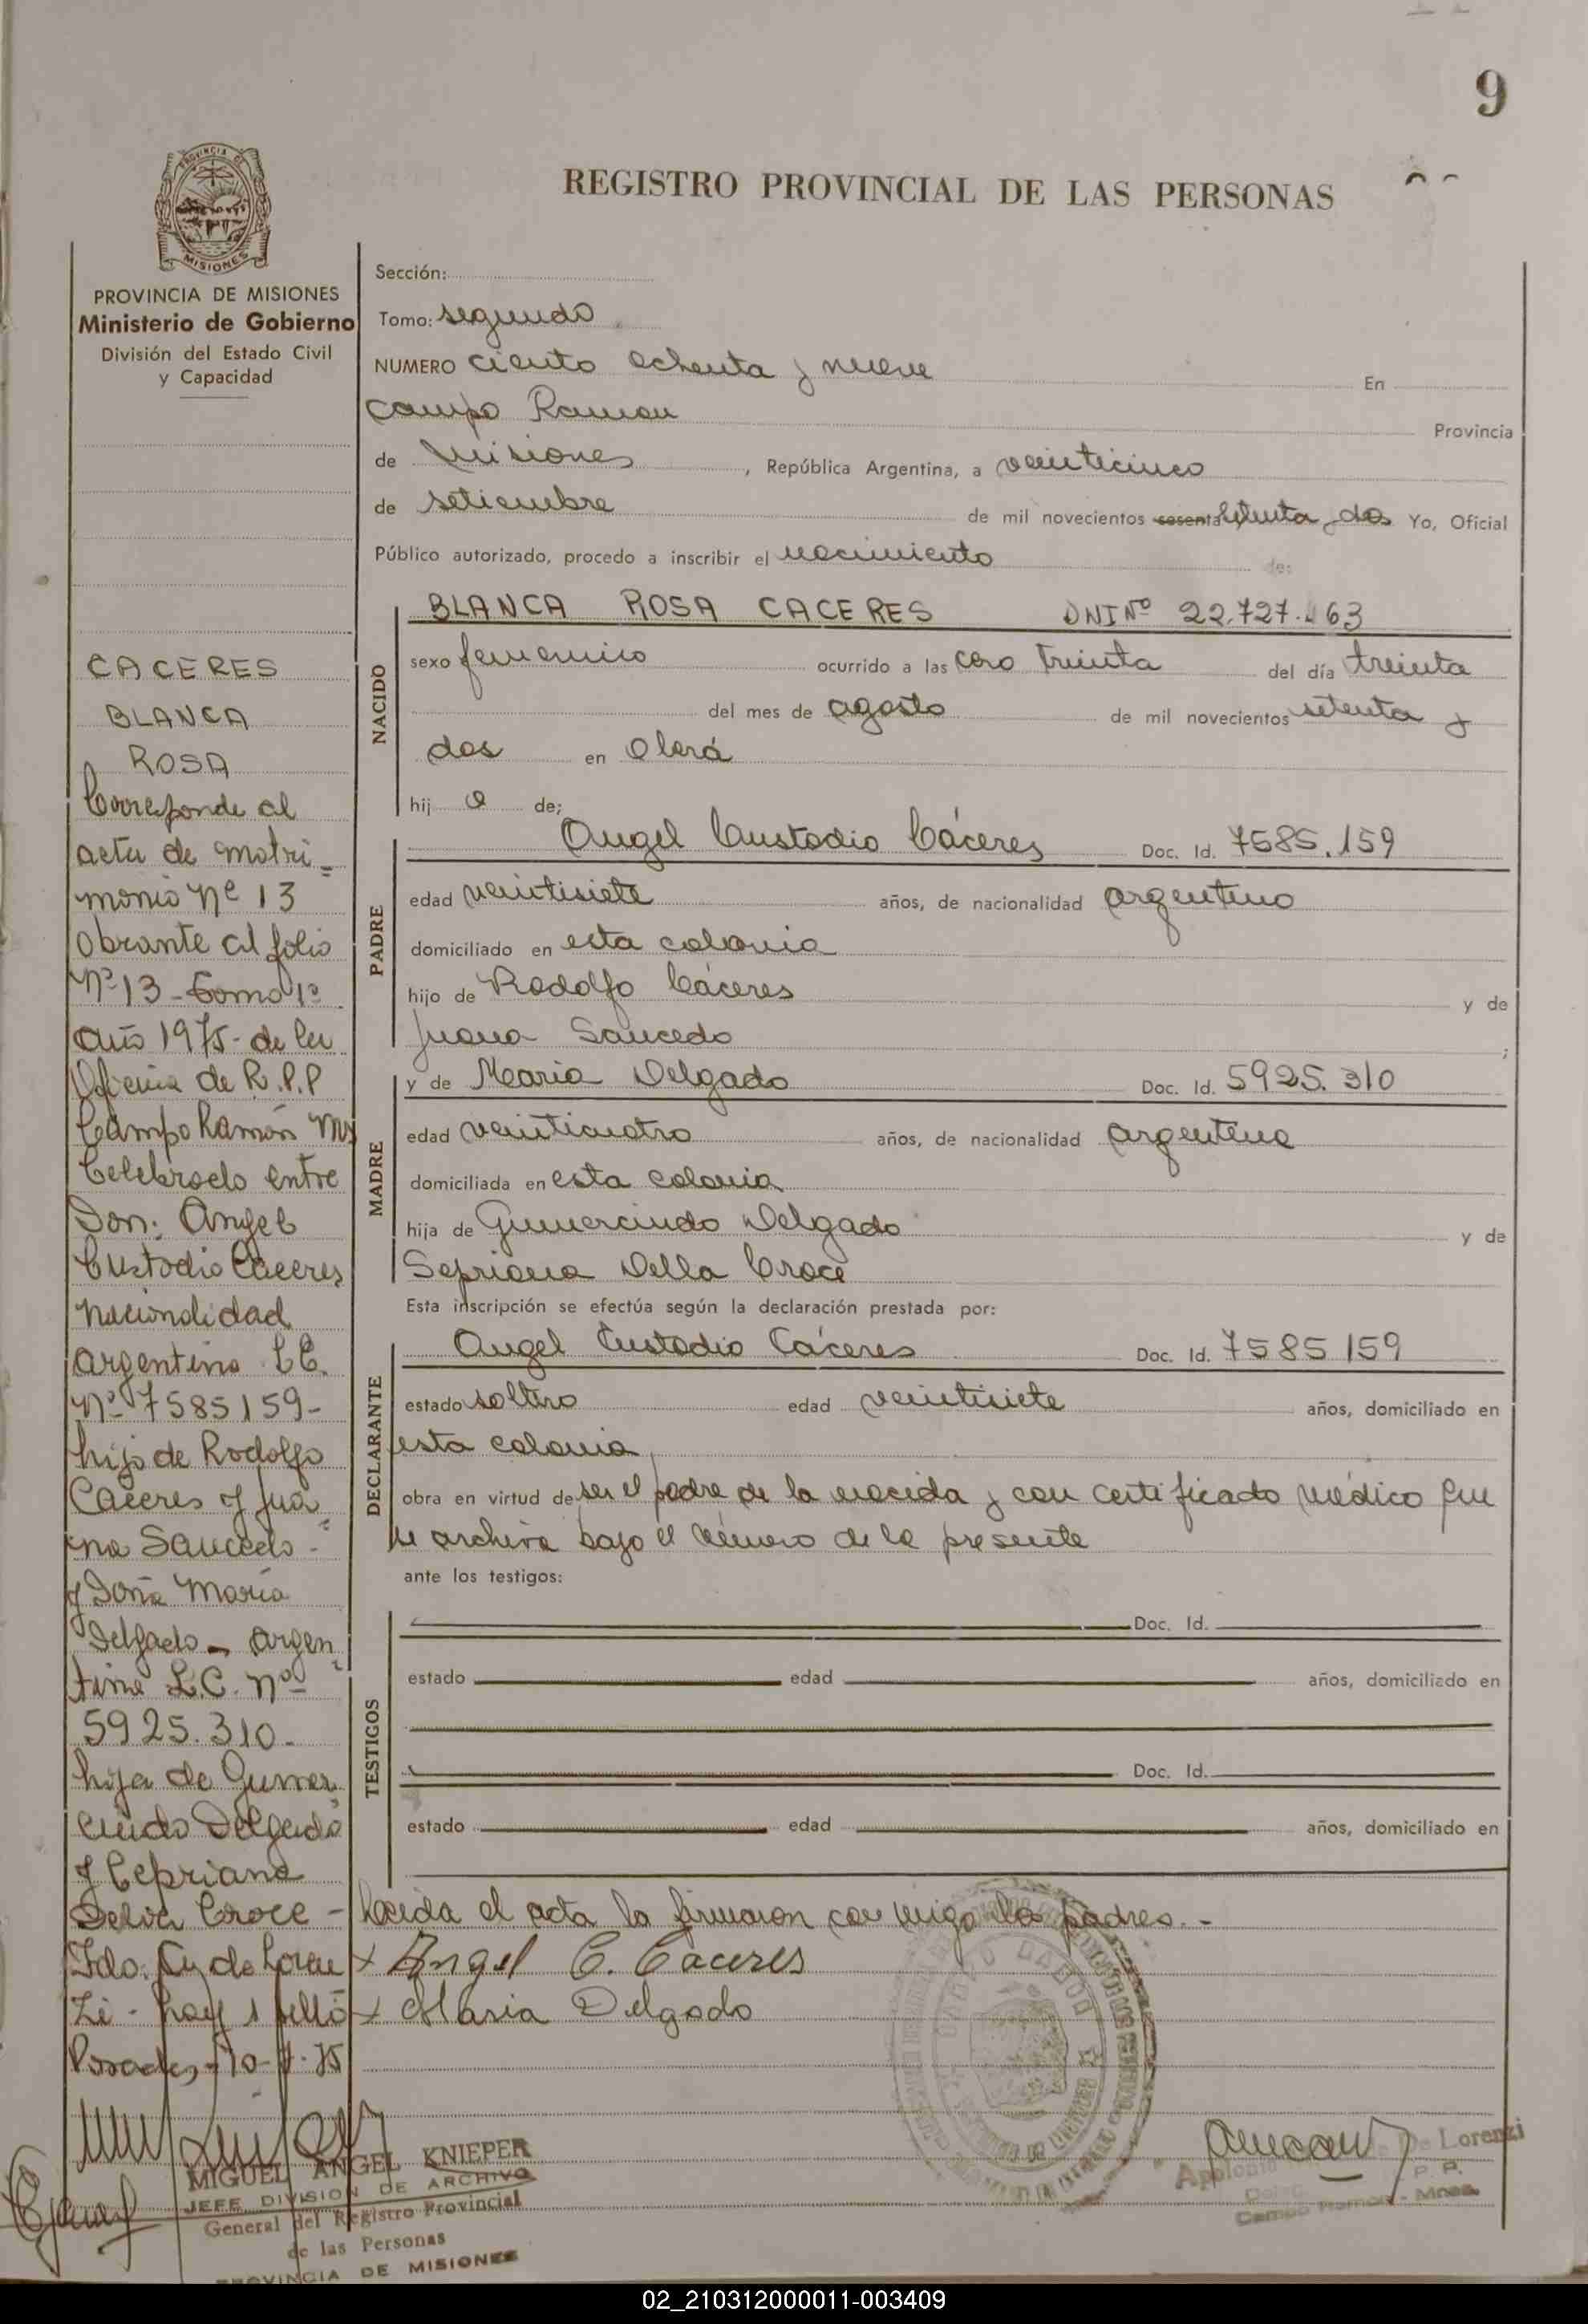 9
REGISTRO PROVINCIAL DE LAS PERSONAS
PROVINCIA DE
MISIONES
PROVINCIA DE MISIONES
Ministerio de Gobierno
División del Estado Civil
y Capacidad
CACERES
BLANCA
ROSA
Corresponde al
acta de matri=
monio Nº 13
Obrante al folio
Nº 13 - Tomo 1º
año 1975 - de la
Oficina de R.P.P
Campo Ramón Ms
Celebrado entre
Don: Angel
Custodio Cáceres
nacionalidad
argentino
Nº 7585159-
hijo de Rodolfo
Caceres y Jua=
na Saucedo -
y Doña María
Delgado - argen
tina L.C. nº
5925.310-
hija de Gumer
cindo Delgado
y Cepriana
Croce -
Fdo. de Loren
zi - hay 1 sello
Posadas, 10- -75
Sección:
Tomo: segundo
NUMERO ciento ochenta y nueve En
Campo Ramon Provincia
de Misiones, República Argentina, a veinticinco
de setiembre de mil novecientos sesenta setenta y dos Yo, Oficial
Público autorizado, procedo a inscribir el nacimiento de:
NACIDO
BLANCA ROSA CACERES DNI Nº 22.727.463
sexo femenino ocurrido a las cero treinta del día treinta
del mes de agosto de mil novecientos setenta y
dos en Oberá
hij a de;
PADRE
Angel Custodio Cáceres Doc. Id. 7585.159
edad veintisiete años, de nacionalidad argentino
domiciliado en esta colonia
hijo de Rodolfo Cáceres y de
Juana Saucedo ;
MADRE
y de Maria Delgado Doc. Id. 5925.310
edad veinticuatro años, de nacionalidad argentina
domiciliada en esta colonia
hija de Gumercindo Delgado y de
Sepriana Della Croce
Esta inscripción se efectúa según la declaración prestada por:
DECLARANTE
Angel Custodio Cáceres Doc. Id. 7585159
estado soltero edad veintisiete años, domiciliado en
esta colonia
obra en virtud de ser el padre de la nacida y con certificado médico que
se archiva bajo el número de la presente
ante los testigos:
TESTIGOS
Doc. Id.
estado edad años, domiciliado en
Doc. Id.
estado edad años, domiciliado en
el acta la firmaron con migo los padres. -
x Angel C. Cáceres
x Maria Delgado
MIGUEL ANGEL KNIEPER
JEFE DIVISION DE ARCHIVO
General del Registro Provincial
de las Personas
PROVINCIA DE MISIONES
De Lorenzi
Campo Ramon - Mnes.
02_210312000011-003409